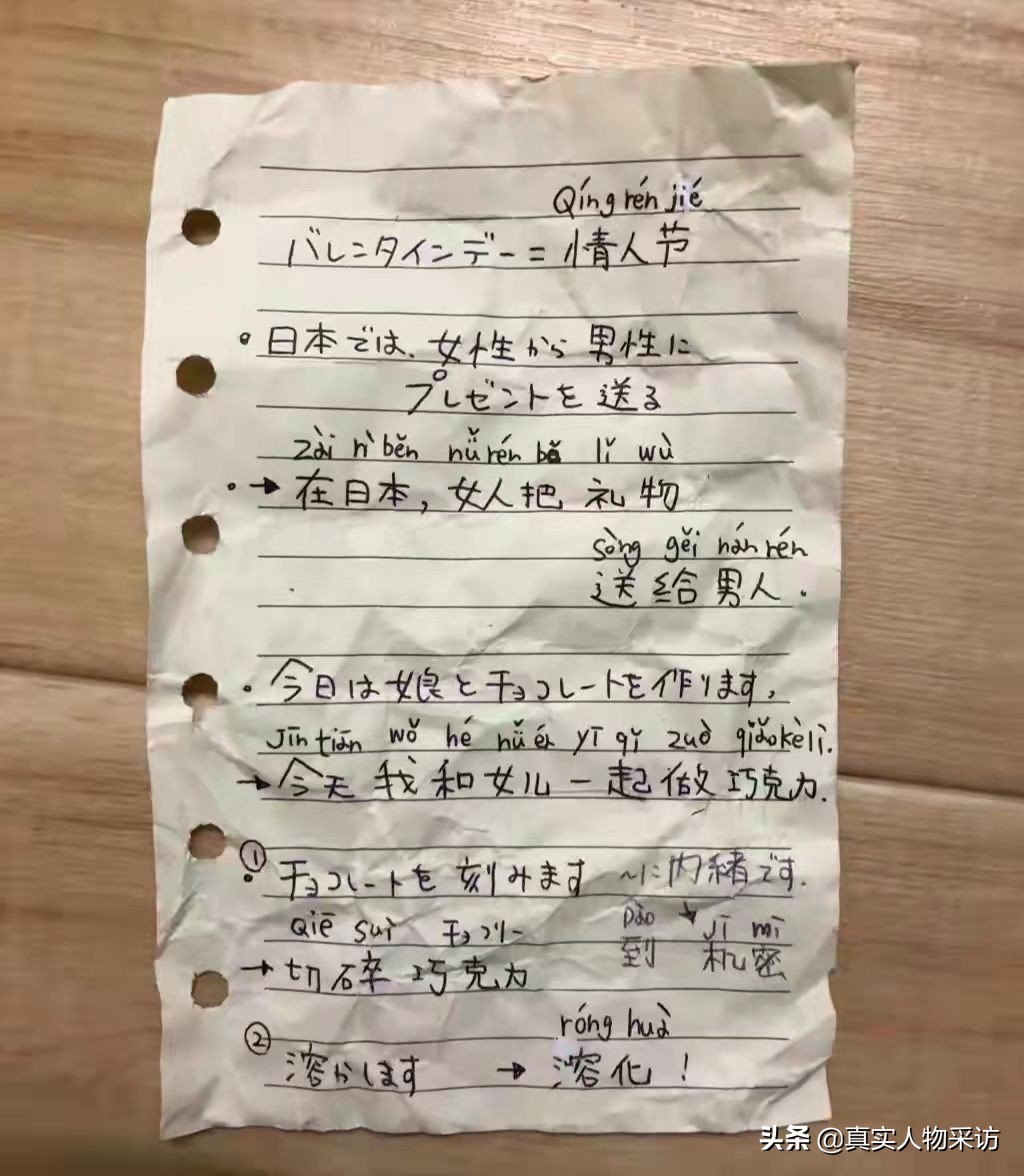 Qíng rén jié
バレンタインデー = 情人节
・日本では、女性から男性に
プレゼントを送る
zài rì běn nǚ rén bǎ lǐ wù
・→ 在日本, 女人把 礼物
sòng gěi nán rén
送给男人.
・今日は娘とチョコレートを作ります。
Jīn tiān wǒ hé nǚ ér yī qǐ zuò qiǎokèlì.
→ 今天 我和女儿一起做巧克力.
① チョコレートを刻みます 〜に内緒です.
qiē suì チョコレー dào jī mì
→ 切碎 巧克力 到 机密
róng huà
② 溶かします → 溶化!
头条 @真实人物采访